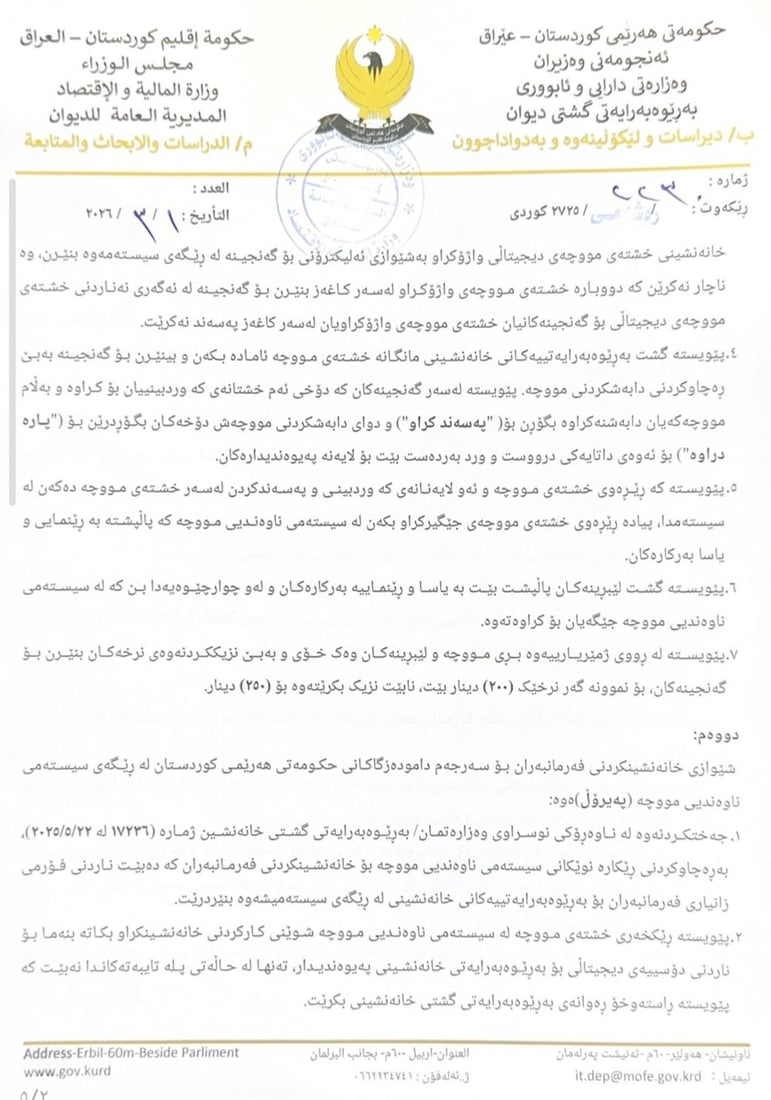 حکومەتی هەرێمی کوردستان – عێراق
ئەنجومەنی وەزیران
وەزارەتی دارایی و ئابووری
بەڕێوەبەرایەتی گشتی دیوان
ب/ دیراسات و لێکۆڵینەوە و بەدواداچوون
حكومة إقليم كوردستان – العراق
مجلس الوزراء
وزارة المالية و الإقتصاد
المديرية العامة للديوان
م/ الدراسات والابحاث والمتابعة
ژمارە : ٢٢٣
ڕێکەوت: / / ٢٧٢٥ کوردی
العدد :
التأريخ : ١ / ٣ / ٢٠٢٦
خانەنشینی خشتەی مووچەی دیجیتاڵی واژۆکراو بەشێوازی ئەلیکترۆنی بۆ گەنجینە لە ڕێگەی سیستەمەوە بنێرن، وە
ناچار نەکرێن کە دووبارە خشتەی مووچەی واژۆکراو لەسەر کاغەز بنێرن بۆ گەنجینە لە ئەگەری نەناردنی خشتەی
مووچەی دیجیتاڵی بۆ گەنجینەکانیان خشتەی مووچەی واژۆکراویان لەسەر کاغەز پەسەند نەکرێت.
٤.پێویستە گشت بەڕێوەبەرایەتییەکانی خانەنشینی مانگانە خشتەی مووچە ئامادە بکەن و بینێرن بۆ گەنجینە بەبێ
ڕەچاوکردنی دابەشکردنی مووچە. پێویستە لەسەر گەنجینەکان کە دۆخی ئەم خشتانەی کە وردبینییان بۆ کراوە و بەڵام
مووچەکەیان دابەشنەکراوە بگۆڕن بۆ( "پەسەند کراو") و دوای دابەشکردنی مووچەش دۆخەکان بگۆڕدرێن بۆ ("پارە
دراوە") بۆ ئەوەی داتایەکی درووست و ورد بەردەست بێت بۆ لایەنە پەیوەندیدارەکان.
٥.پێویستە کە ڕێڕەوی خشتەی مووچە و ئەو لایەنانەی کە وردبینی و پەسەندکردن لەسەر خشتەی مووچە دەکەن لە
سیستەمدا، پیادە ڕێڕەوی خشتەی مووچەی جێگیرکراو بکەن لە سیستەمی ناوەندیی مووچە کە پاڵپشتە بە ڕێنمایی و
یاسا بەرکارەکان.
٦.پێویستە گشت لێبڕینەکان پاڵپشت بێت بە یاسا و ڕێنماییە بەرکارەکان و لەو چوارچێوەیەدا بن کە لە سیستەمی
ناوەندیی مووچە جێگەیان بۆ کراوەتەوە.
٧.پێویستە لە ڕووی ژمێریارییەوە بڕی مووچە و لێبڕینەکان وەک خۆی و بەبێ نزیککردنەوەی نرخەکان بنێرن بۆ
گەنجینەکان، بۆ نموونە گەر نرخێک (٢٠٠) دینار بێت، نابێت نزیک بکرێتەوە بۆ (٢٥٠) دینار.
دووەم:
شێوازی خانەنشینکردنی فەرمانبەران بۆ سەرجەم دامودەزگاکانی حکومەتی هەرێمی کوردستان لە ڕێگەی سیستەمی
ناوەندیی مووچە (پەیرۆڵ)ەوە:
١.جەختکردنەوە لە ناوەڕۆکی نوسراوی وەزارەتمان/ بەڕێوەبەرایەتی گشتی خانەنشین ژمارە (١٧٢٣٦ لە ٢٠٢٥/٥/٢٢)،
بەڕەچاوکردنی ڕێکارە نوێکانی سیستەمی ناوەندیی مووچە بۆ خانەنشینکردنی فەرمانبەران کە دەبێت ناردنی فۆڕمی
زانیاری فەرمانبەران بۆ بەڕێوەبەرایەتییەکانی خانەنشینی لە ڕێگەی سیستەمیشەوە بنێردرێت.
٢.پێویستە ڕێکخەری خشتەی مووچە لە سیستەمی ناوەندیی مووچە شوێنی کارکردنی خانەنشینکراو بکاتە بنەما بۆ
ناردنی دۆسییەی دیجیتاڵی بۆ بەڕێوەبەرایەتی خانەنشینی پەیوەندیدار، تەنها لە حاڵەتی پلە تایبەتەکاندا نەبێت کە
پێویستە ڕاستەوخۆ ڕەوانەی بەڕێوەبەرایەتی گشتی خانەنشینی بکرێت.
ناونیشان- هەولێر- ٦٠م -تەنیشت پەرلەمان
ئیمەیل : it.dep@mofe.gov.krd
العنوان-اربيل -٦٠٠م- بجانب البرلمان
ژ.تەلەفۆن : ٠٦٦٢٢٣٤٧٤١
Address-Erbil-60m-Beside Parliment
www.gov.kurd
٥/٢